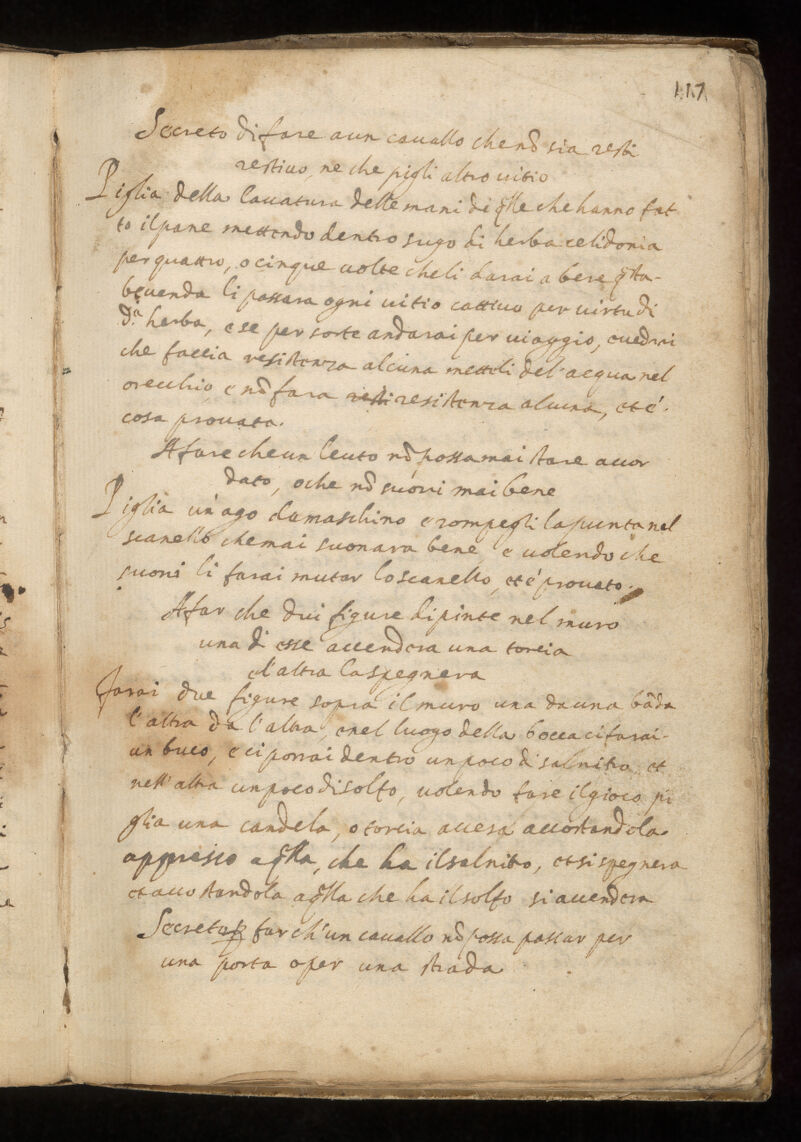 117
Secreto di fare a un cavallo che nō sia resti
restiuo, ne che pigli altro uitio
Piglia della lauatura delle mani di q̃lle che hanno fat
to il pane mettendo dentro sugo di herba celidonia
per quattro, o cinque uolte che li darai a bere q̃sta
beuenda li passara ogni uitio cattiuo per uirtu di
d.ᵃ herba, e se per sorte andarai per uiaggio, e uedrai
che faccia resistenza alcuna mettili del'acqua nel
orecchio, e nō fara resti resistenza alcuna, et è
cosa prouata.
A fare che un leuto nō possa mai stare accor
dato, o che nō suoni mai bene
Piglia un'ago damaschino e rompegli la punta nel
scanello che mai suonara bene e uolendo che
suoni li farai mutar lo scanello, et é prouato.
A far che dui figure dipinte nel muro
una di esse accendera una torcia
el'altra la spegnera
Farai due figure sopra il muro una da una bāda
l'altra da l'altra, e nel luogo della bocca ci farai
un buco, e ci porrai dentro un poco di salnitro, et
nell'altra un poco di solfo, uolendo fare il gioco pi
glia una candela, o torcia accesa accostandola
appresso a q̃lla, che ha il salnitro, et si spegnera
et accostandola a q̃lla che ha il solfo si accendera
Secreto ꝑ far ch'un cauallo nō possa passar per
una porta o per una strada